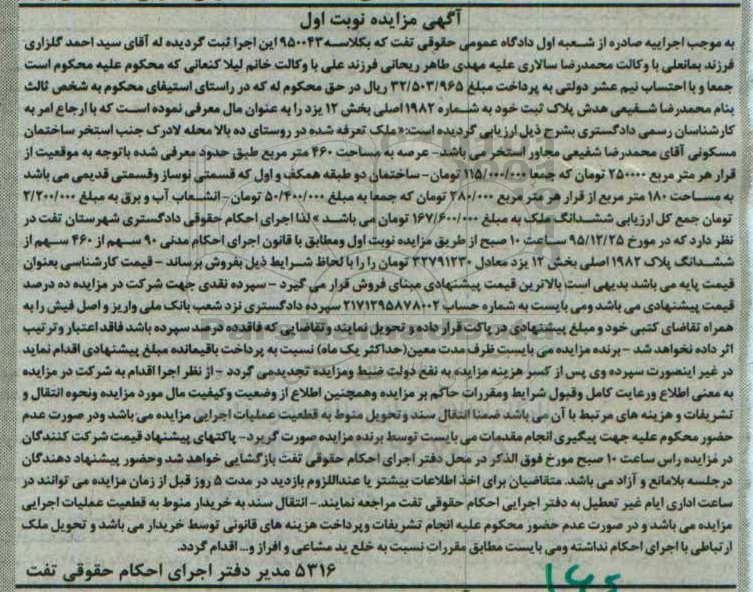 آگهی مزایده نوبت اول
به موجب اجراییه صادره از شعبه اول دادگاه عمومی حقوقی تفت که بکلاسه ۹۵۰۰۴۳ این اجرا ثبت گردیده له آقای سید احمد گلزاری
فرزند بمانعلی با وکالت محمدرضا سالاری علیه مهدی طاهر ریحانی فرزند علی با وکالت خانم لیلا کنعانی که محکوم علیه محکوم است
جمعا و با احتساب نیم عشر دولتی به پرداخت مبلغ ۳۲/۵۰۳/۹۶۵ ریال در حق محکوم له که در راستای استیفای محکوم به شخص ثالث
بنام محمدرضا شفیعی هدش پلاک ثبت خود به شماره ۱۹۸۲ اصلی بخش ۱۲ یزد را به عنوان مال معرفی نموده است که با ارجاع امر به
کارشناسان رسمی دادگستری بشرح ذیل ارزیابی گردیده است: «ملک تعرفه شده در روستای ده بالا محله لادرک جنب استخر ساختمان
مسکونی آقای محمدرضا شفیعی مجاور استخر می باشد- عرصه به مساحت ۴۶۰ متر مربع طبق حدود معرفی شده باتوجه به موقعیت از
قرار هر متر مربع ۲۵۰۰۰۰ تومان که جمعا ۱۱۵/۰۰۰/۰۰۰ تومان- ساختمان دو طبقه همکف و اول که قسمتی نوساز وقسمتی قدیمی می باشد
به مساحت ۱۸۰ متر مربع از قرار هر متر مربع ۲۸۰/۰۰۰ تومان که جمعا به مبلغ ۵۰/۴۰۰/۰۰۰ تومان- انشعاب آب و برق به مبلغ ۲/۲۰۰/۰۰۰
تومان جمع کل ارزیابی ششدانگ ملک به مبلغ ۱۶۷/۶۰۰/۰۰۰ تومان می باشد » لذا اجرای احکام حقوقی دادگستری شهرستان تفت در
نظر دارد که در مورخ ۹۵/۱۲/۲۵ ساعت ۱۰ صبح از طریق مزایده نوبت اول ومطابق با قانون اجرای احکام مدنی ۹۰ سهم از ۴۶۰ سهم از
ششدانگ پلاک ۱۹۸۲ اصلی بخش ۱۲ یزد معادل ۳۲۷۹۱۲۳۰ تومان را را با لحاظ شرایط ذیل بفروش برساند - قیمت کارشناسی بعنوان
قیمت پایه می باشد بدیهی است بالاترین قیمت پیشنهادی مبنای فروش قرار می گیرد - سپرده نقدی جهت شرکت در مزایده ده درصد
قیمت پیشنهادی می باشد ومی بایست به شماره حساب ۲۱۷۱۲۹۵۸۷۸۰۰۲ سپرده دادگستری نزد شعب بانک ملی واریز و اصل فیش را به
همراه تقاضای کتبی خود و مبلغ پیشنهادی در پاکت قرار داده و تحویل نمایند و تقاضایی که فاقد ده درصد سپرده باشد فاقد اعتبار و ترتیب
اثر داده نخواهد شد - برنده مزایده می بایست ظرف مدت معین(حداکثر یک ماه) نسبت به پرداخت باقیمانده مبلغ پیشنهادی اقدام نماید
در غیر اینصورت سپرده وی پس از کسر هزینه مزایده به نفع دولت ضبط ومزایده تجدیدمی گردد - از نظر اجرا اقدام به شرکت در مزایده
به معنی اطلاع ورعایت کامل وقبول شرایط ومقررات حاکم بر مزایده وهمچنین اطلاع از وضعیت وکیفیت مال مورد مزایده ونحوه انتقال و
تشریفات و هزینه های مرتبط با آن می باشد ضمنا انتقال سند وتحویل منوط به قطعیت عملیات اجرایی مزایده می باشد ودر صورت عدم
حضور محکوم علیه جهت پیگیری انجام مقدمات می بایست توسط برنده مزایده صورت گیرد- پاکتهای پیشنهاد قیمت شرکت کنندگان
در مزایده راس ساعت ۱۰ صبح مورخ فوق الذکر در محل دفتر اجرای احکام حقوقی تفت بازگشایی خواهد شد وحضور پیشنهاد دهندگان
درجلسه بلامانع و آزاد می باشد. متقاضیان برای اخذ اطلاعات بیشتر یا عنداللزوم بازدید در مدت ۵ روز قبل از زمان مزایده می توانند در
ساعت اداری ایام غیر تعطیل به دفتر اجرایی احکام حقوقی تفت مراجعه نمایند.- انتقال سند به خریدار منوط به قطعیت عملیات اجرایی
مزایده می باشد و در صورت عدم حضور محکوم علیه انجام تشریفات وپرداخت هزینه های قانونی توسط خریدار می باشد و تحویل ملک
ارتباطی با اجرای احکام نداشته ومی بایست مطابق مقررات نسبت به خلع ید مشاعی و افراز و... اقدام گردد.
۵۳۱۶ مدیر دفتر اجرای احکام حقوقی تفت